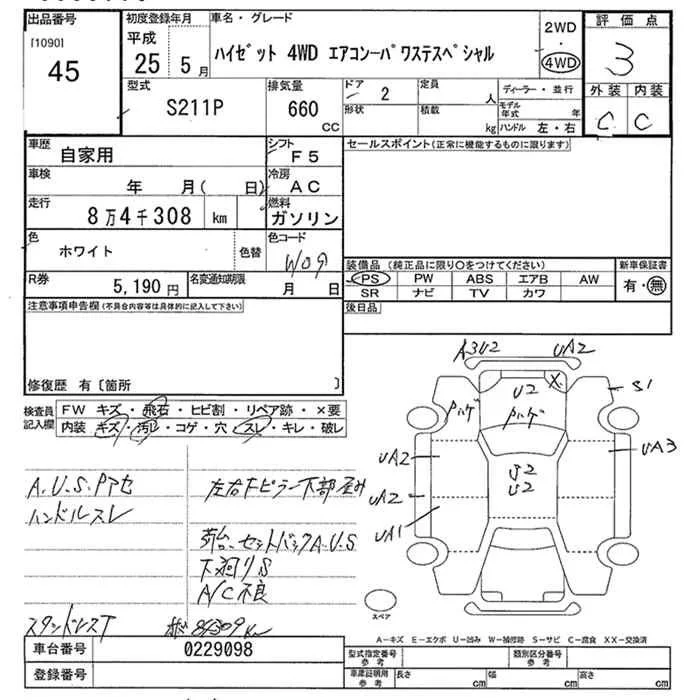 出品番号 初度登録年月 車名・グレード 2WD ・ 4WD 評価点
[1090] 45 平成 25 5月 ハイゼット 4WD エアコンーパワステスペシャル 3
型式 排気量 ドア 定員 ディーラー・並行 外装 内装
S211P 660 CC 2 人 形状 積載 kg モデル年式 年 ハンドル 左・右 C C
車歴 自家用 シフト F5 セールスポイント(正常に機能するものに限ります)
車検 年 月( 日) 冷房 AC
走行 8万4千308 km 燃料 ガソリン
色 ホワイト 色替 色コード W09
装備品 (純正品に限り○をつけてください) 新車保証書
PS PW ABS エアB AW 有・無
SR ナビ TV カワ
R券 5,190円 名変通知期限 月 日
後日品
注意事項申告欄(不具合内容等は具体的に記入して下さい)
修復歴 有〔箇所 〕
検査員記入欄 FW キズ・飛石・ヒビ割・リペア跡・×要
内装 キズ・汚レ・コゲ・穴・スレ・キレ・破レ
A3U2 UA2
U2 X S1
Pハゲ Pハゲ
UA2 UA3
S2
U2
UA2
UA1
スペア
A.U.S.Pアセ 左右Fピラー下部歪み
ハンドルスレ
荷台、セットバックA.U.S
下廻りS
A/C不良
A-キズ E-エクボ U-凹み W-補修跡 S-サビ C-腐食 XX-交換済
車台番号 0229098 型式指定番号 参考 類別区分番号 参考
登録番号 車庫証明用 参考 長さ cm 幅 cm 高さ cm